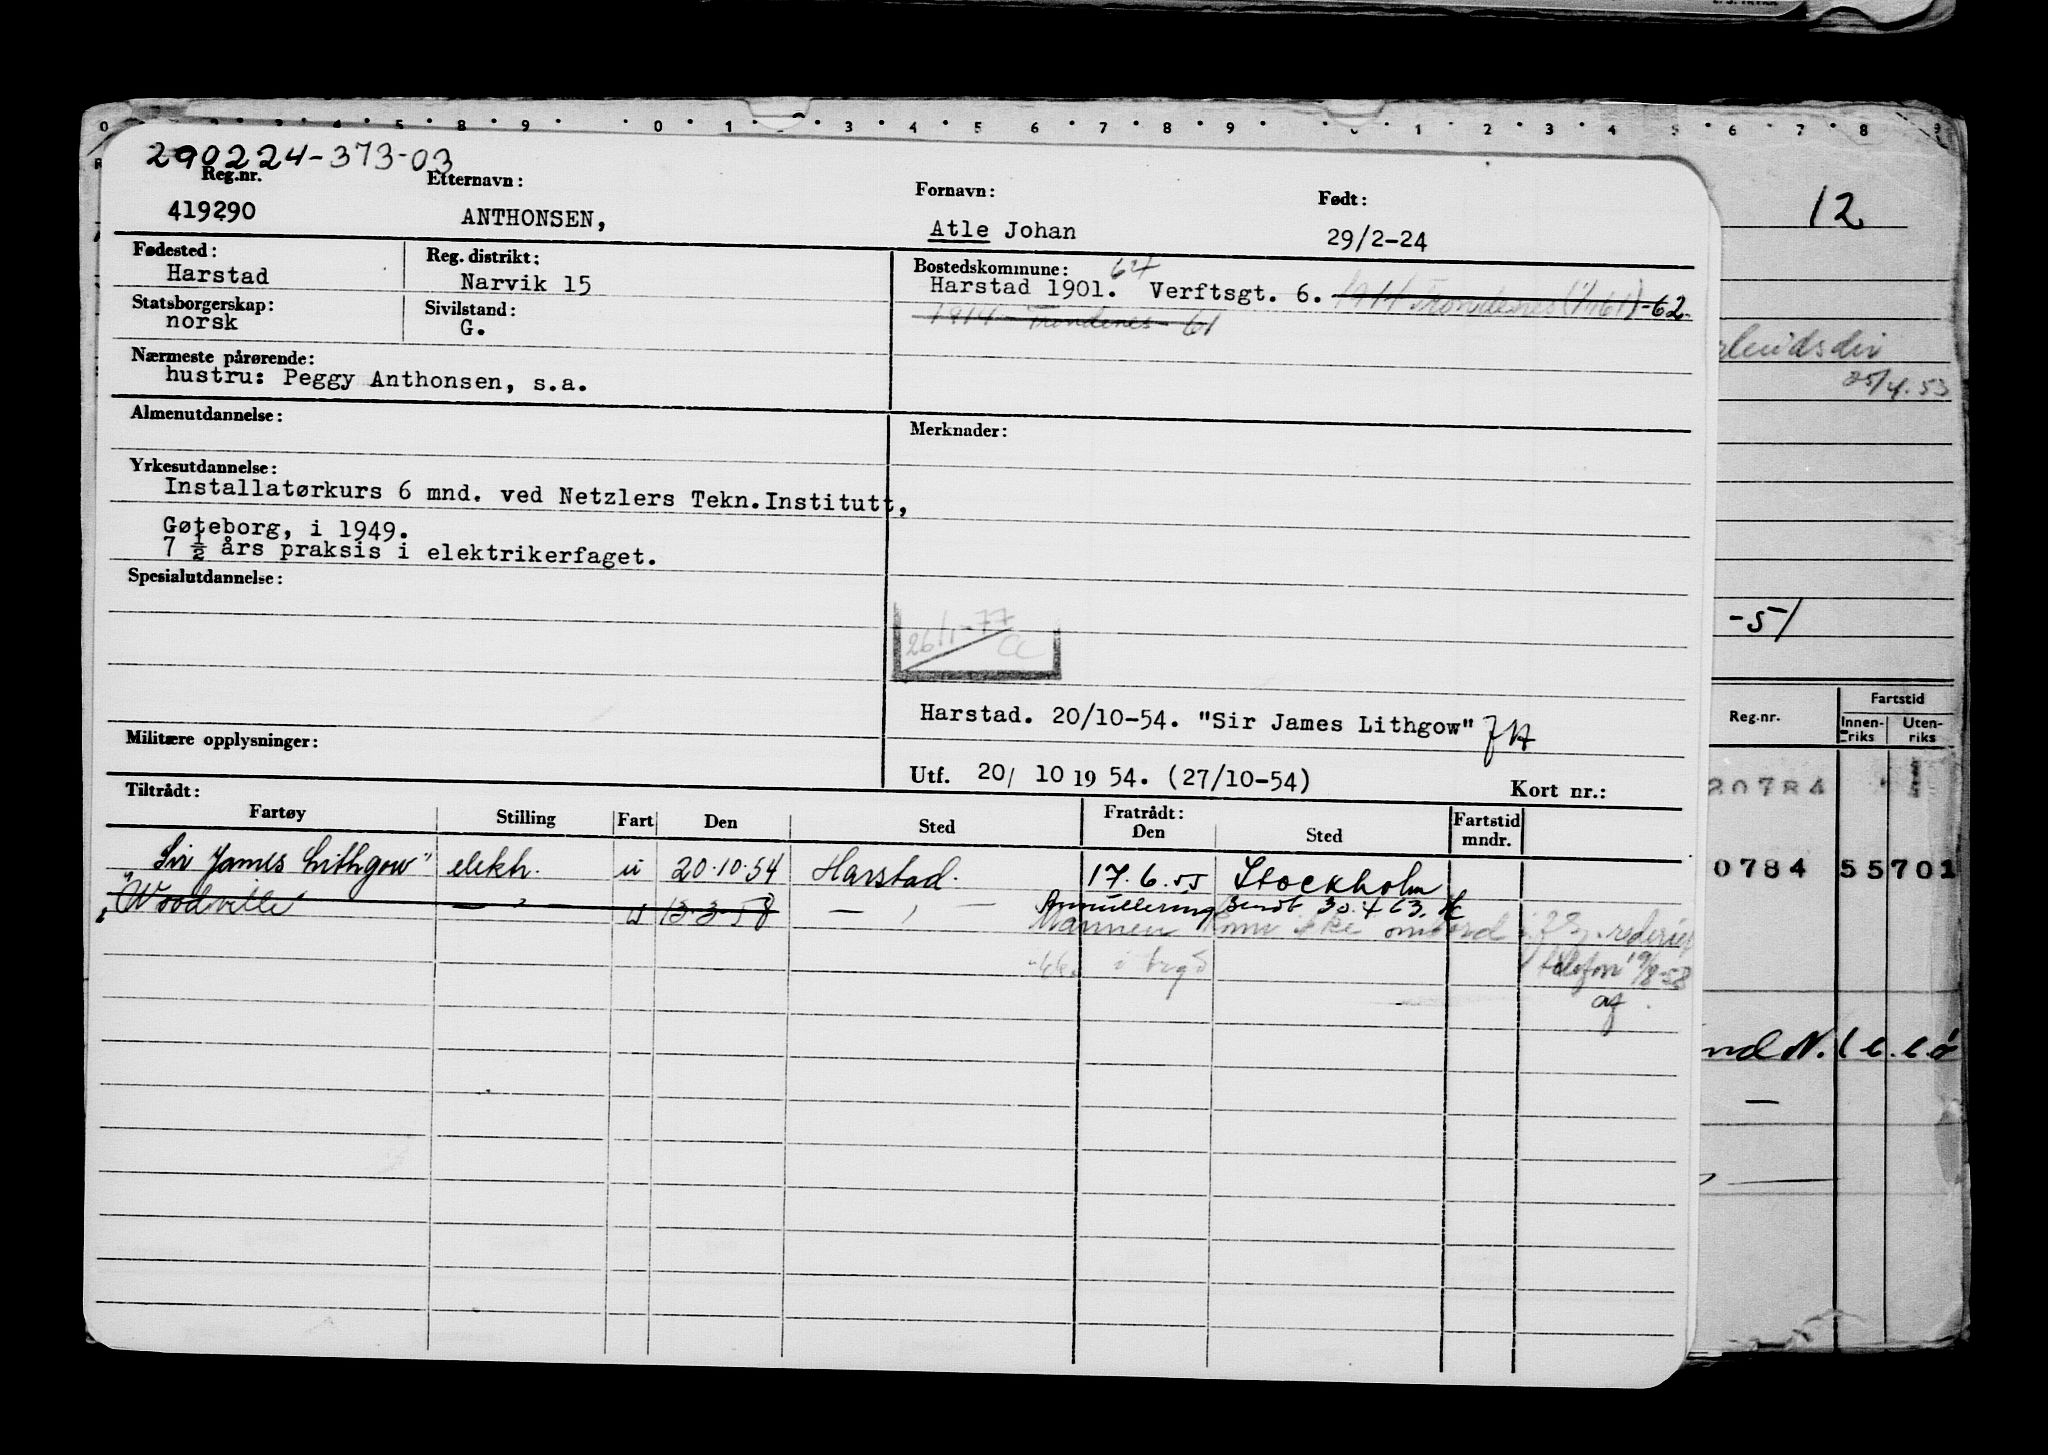 0 2 3 4 5 8 9 0 1 2 3 4 5 6 7 8 9 0 1 2 3 4 5 6 7 8 9
290224-373-03
Reg.nr. Etternavn: Fornavn: Født:
419290 ANTHONSEN, Atle Johan 29/2-24
12
Fødested: Reg. distrikt: Bostedskommune: 64
Harstad Narvik 15 Harstad 1901. Verftsgt. 6. 1914 Trondenes (1/1 61) -62.
Statsborgerskap: Sivilstand: 1914 - Trondenes - 61
norsk G.
Nærmeste pårørende:
hustru: Peggy Anthonsen, s.a.
25/4.53
Almenutdannelse: Merknader:
Yrkesutdannelse:
Installatørkurs 6 mnd. ved Netzlers Tekn.Institutt,
Gøteborg, i 1949.
7 ½ års praksis i elektrikerfaget.
Spesialutdannelse:
26/1-77
-51
Harstad. 20/10-54. "Sir James Lithgow"
Reg.nr. Fartstid
Innen-riks Uten-riks
Militære opplysninger:
Utf. 20/ 10 19 54. (27/10-54) Kort nr.:
20784
Tiltrådt: Fratrådt:
Fartøy Stilling Fart Den Sted Den Sted Fartstid mndr.
Sir James Lithgow" elektr. u 20.10.54 Harstad. 17.6.55 Stockholm
0784 55701
"Woodville" — " — u 13.3.58 — , — Annullering sendt 30.4 63.
Mannen kom ikke ombord rederiet
i brgd telefon 9/8-58
af.